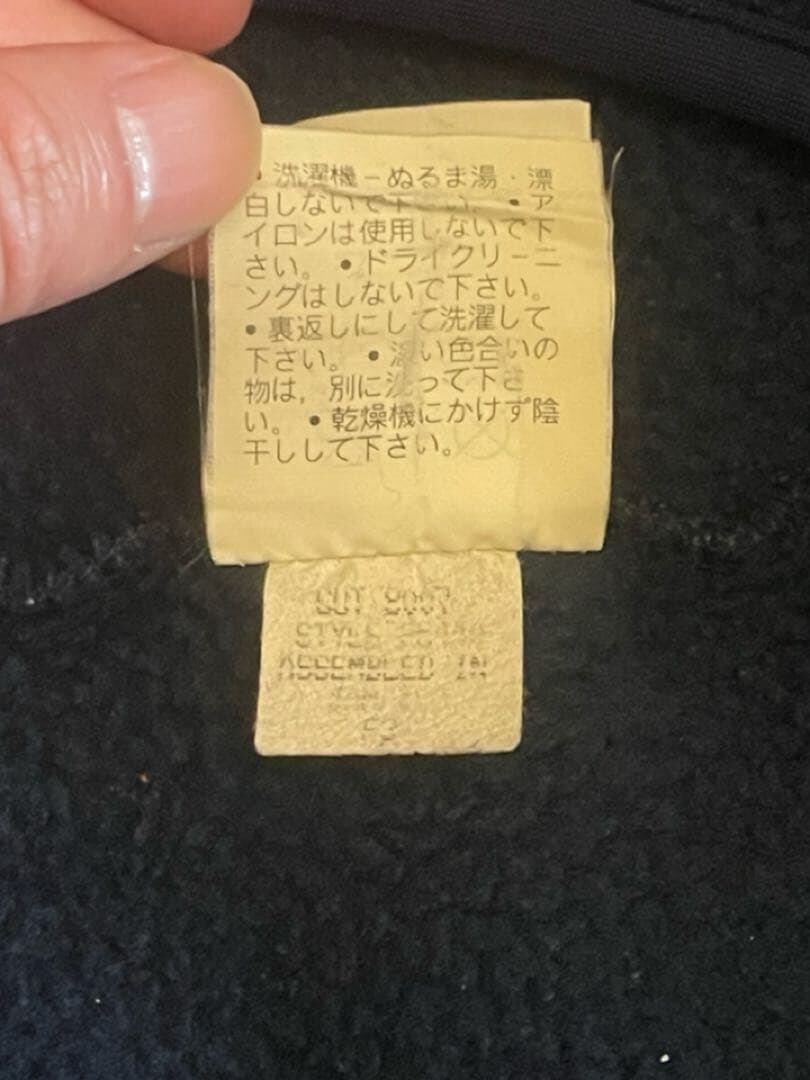 • 洗濯機－ぬるま湯・漂
白しないで下さい。 • ア
イロンは使用しないで下
さい。 • ドライクリーニ
ングはしないで下さい。
• 裏返しにして洗濯して
下さい。 • 濃い色合いの
物は, 別に洗って下さ
い。 • 乾燥機にかけず陰
干しして下さい。
ASSEMBLED IN